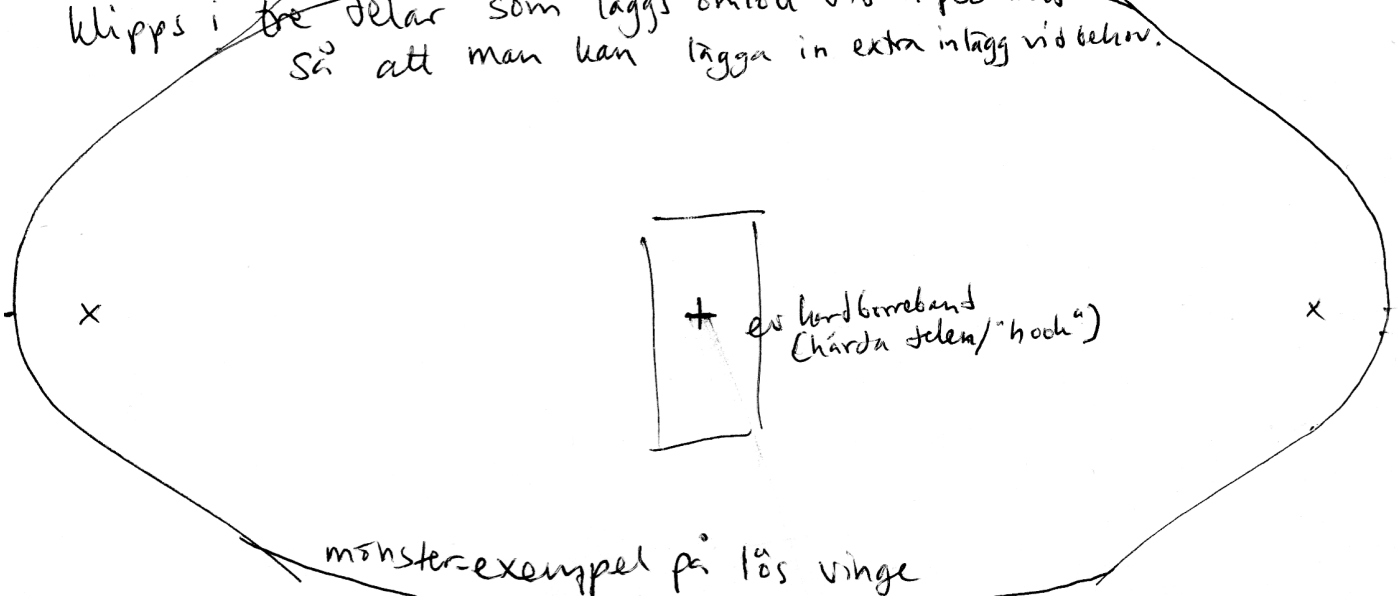 klipps i tre delar som läggs omlott vid
så att man kan lägga in extra inlägg vid behov.
ev kardborreband
(hårda delen/"hook")
mönster-exempel på lös vinge